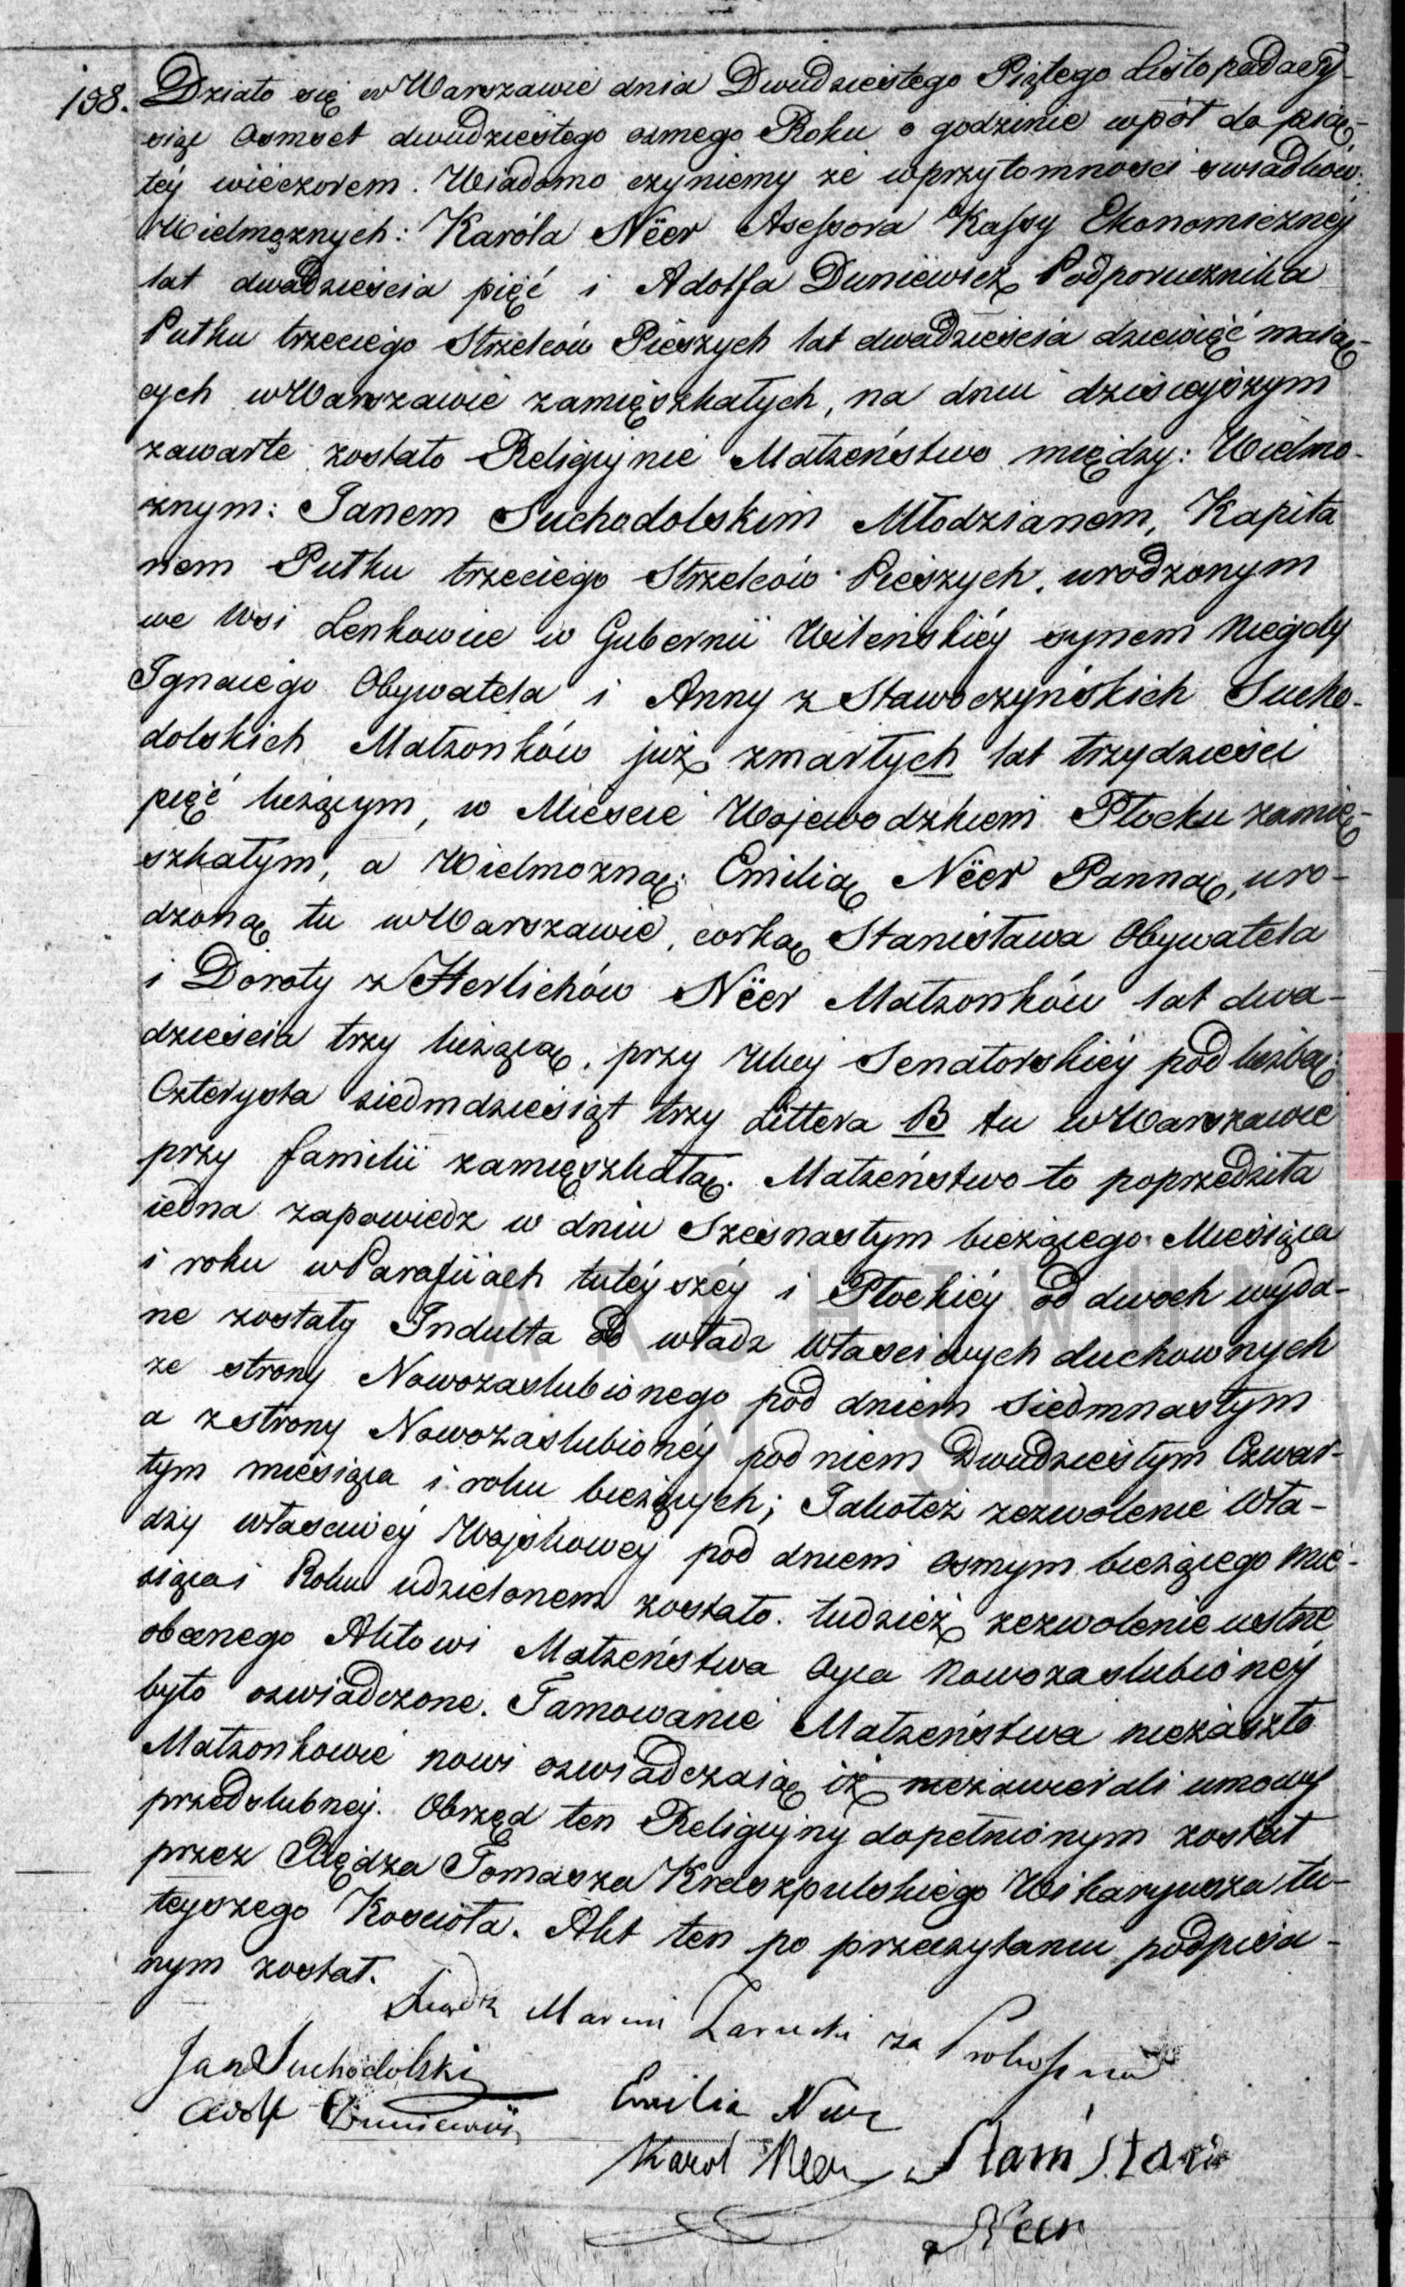 158. Działo się w Warszawie dnia Dwudziestego Piątego Listopada Ty-
siąc Osmset dwudziestego osmego Roku o godzinie wpół do pią-
téy wieczorem. Wiadomo czyniemy że w przytomnosci swiadków:
Wielmożnych: Karóla Nëer Assessora Kassy Ekonomicznéy
lat dwadzieścia pięć i Adolfa Duniewicz Podporucznika
Pułku trzeciego Strzelców Pieszych lat dwadzieścia dziewięć maią-
cych w Warszawie zamięszkałych, na dniu dzisieyszym
zawarte zostało Religijnie Małżeństwo między: Wielmo-
żnym: Janem Suchodolskim Młodzianem, Kapita
nem Pułku trzeciego Strzelców Pieszych, urodzonym
we Wsi Lenkowice w Gubernii Wileńskiéy synem Niegdy
Ignacego Obywatela i Anny z Sławoczyńskich Sucho-
dolskich Małżonków już zmarłych lat trzydzieści
pięć liczącym, w Mieście Wojewodzkiem Płocku zamię-
szkałym, a Wielmożną: Emilią Nëer Panną, uro-
dzoną tu w Warszawie, corką Stanisława Obywatela
i Doroty z Herlichów Nëer Małżonków lat dwa-
dzieścia trzy liczącą, przy Ulicy Senatorskiéy pod liczbą
Czterysta siedmdziesiąt trzy Littera B tu w Warszawie
przy familii zamięszkałą. Małżeństwo to poprzedziła
iedna zapowiedz w dniu Szesnastym bieżącego Miesiąca
i roku w Parafiiach tutéyszéy i Płockiéy od dwoch wyda-
ne zostały Indulta od władz własciwych duchownych
ze strony Nowozaslubionego pod dniem siedmnastym
a z strony Nowozaslubionéy pod niem Dwudziestym Czwar-
tym miesiąca i roku bieżących; Jakoteż zezwolenie Wła-
dzy własciwéy Wojskowey pod dniem osmym bieżącego Mie-
siąca i Roku udzielonem zostało. tudzież zezwolenie ustne
obecnego Aktowi Małżeństwa Oyca Nowozaslubionéy
było oswiadczone. Tamowanie Małżeństwa niezaszło
Małżonkowie nowi oswiadczaią iż niezawierali umowy
przedslubnej. Obrzęd ten Religijny dopełnionym został
przez Księdza Tomasza Kraszpulskiego Wikaryusza tu-
teyszego Kościoła. Akt ten po przeczytaniu podpisa-
nym został.
Xiądz Marcin Zarucki za Proboszcza
Jan Suchodolski
Adolf Duniewicz
Emilia Neer
Karol Neer Stanisław
Neer
ARCHIWUM